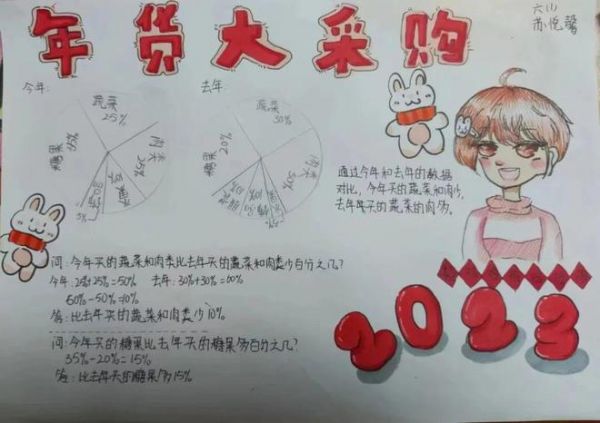 年货大采购
六(1)
苏悦馨
今年:
蔬菜
25%
肉类
25%
糖果
35%
去年:
蔬菜
30%
肉类
30%
糖果
20%
10%
通过今年和去年的数据
对比,今年买的蔬菜和肉少,
去年买的蔬菜的肉多。
问:今年买的蔬菜和肉类比去年买的蔬菜和肉类少百分之几?
今年:25%+25%=50% 去年:30%+30%=60%
60%-50%=10%
答:比去年买的蔬菜和肉类少10%
问:今年买的糖果比去年买的糖果多百分之几?
35%-20%=15%
答:比去年买的糖果多15%
2023